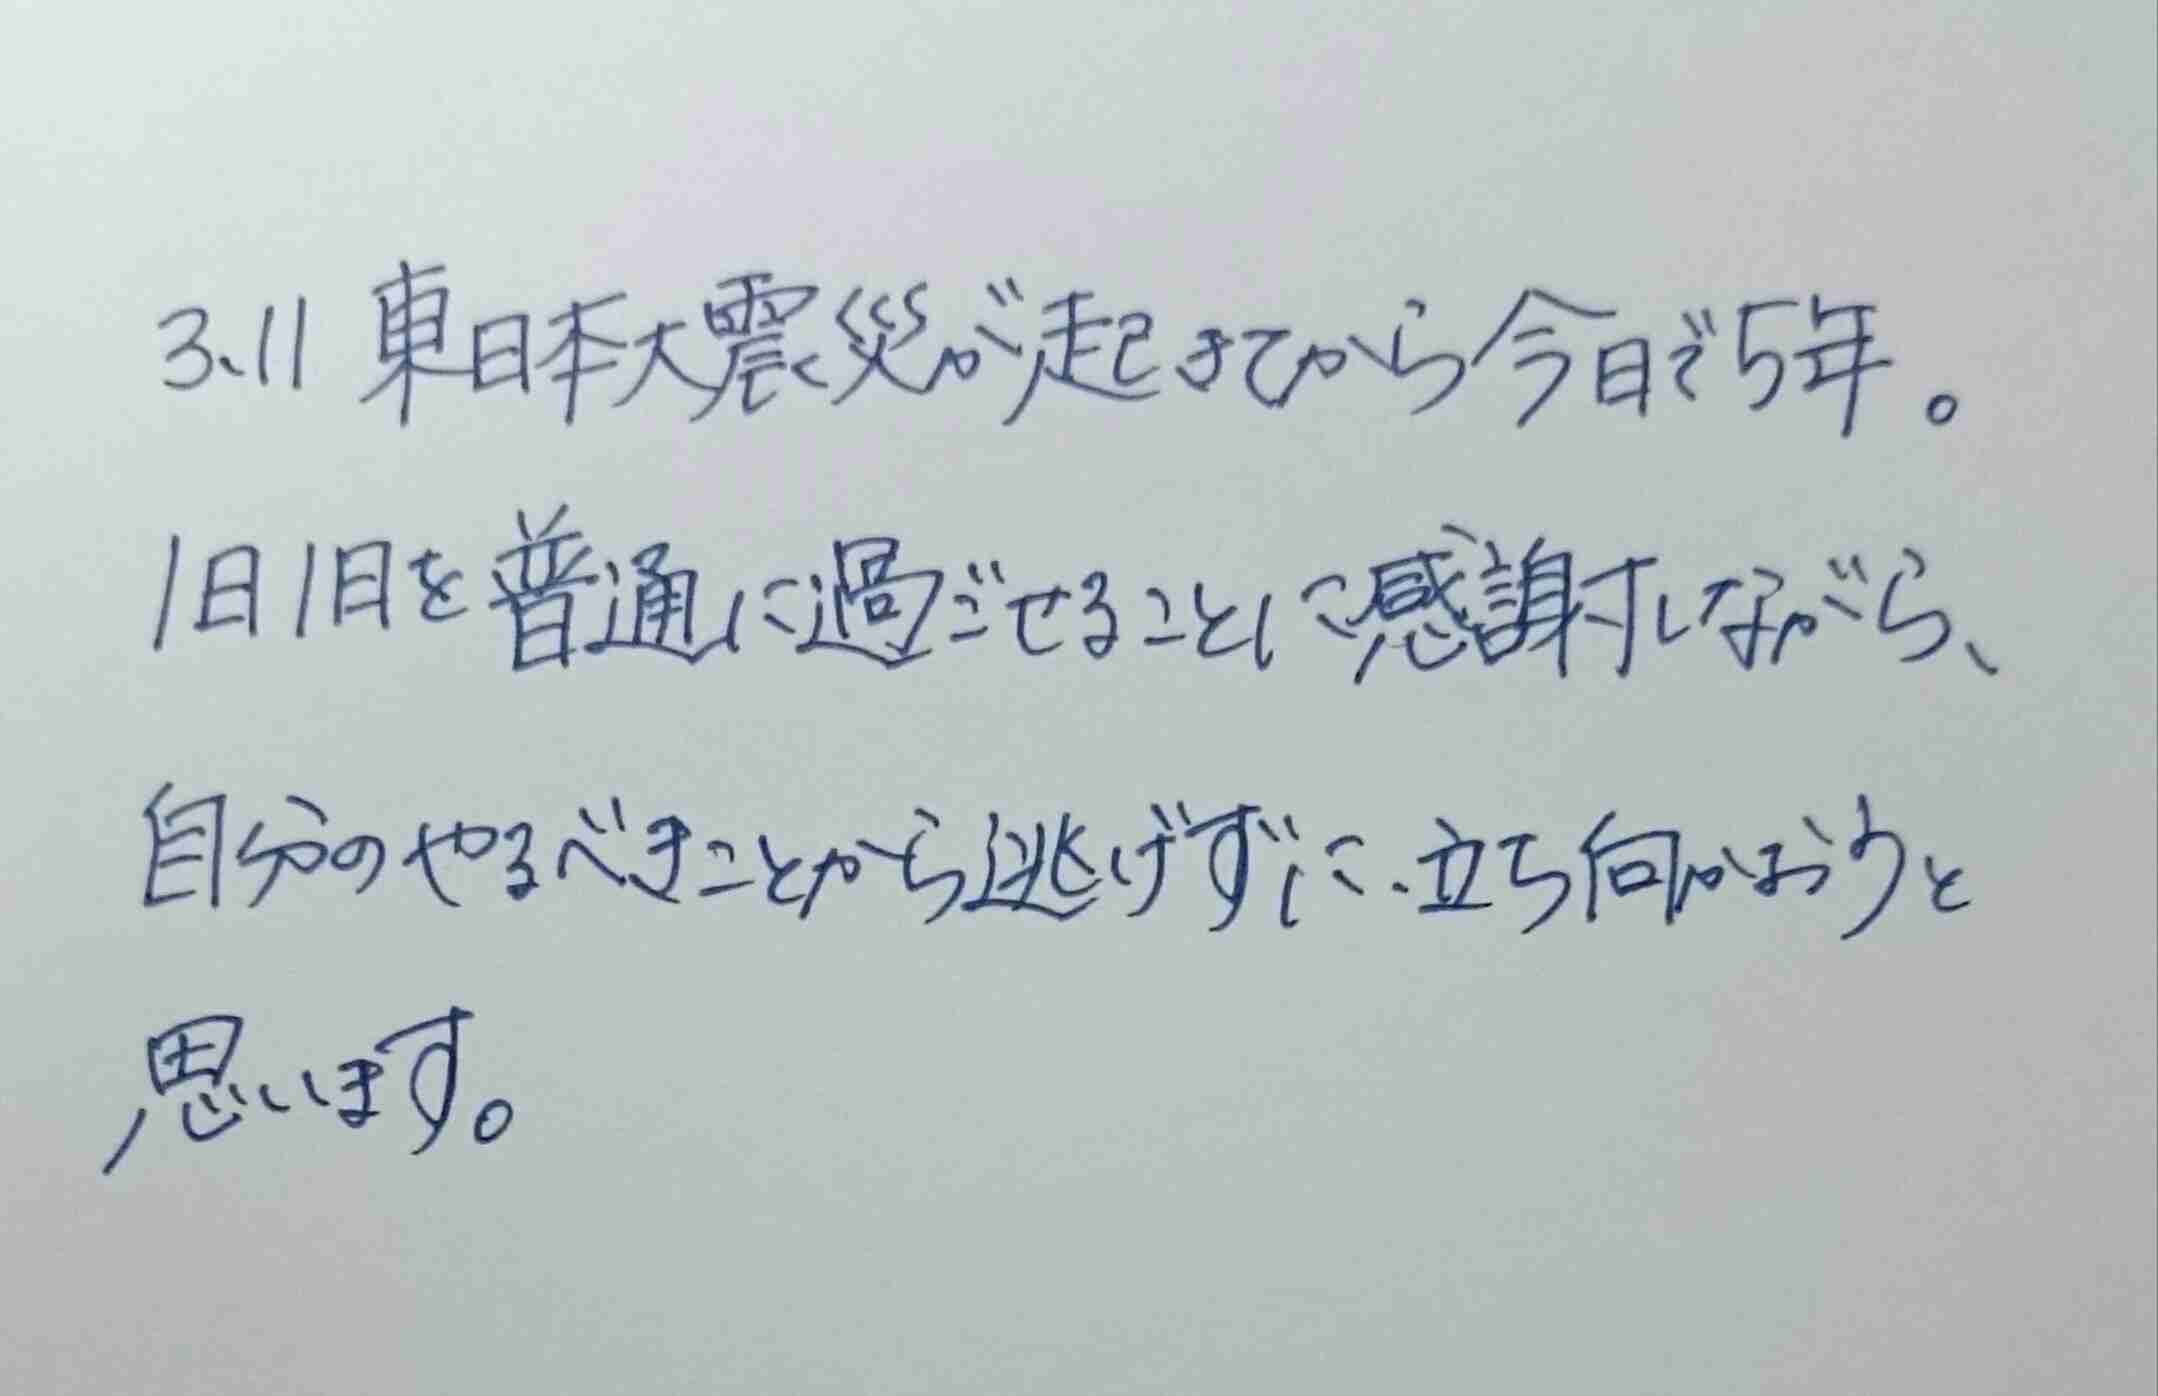 3.11 東日本大震災が起きてから今日で5年。
1日1日を普通に過ごせることに感謝しながら、
自分のやるべきことから逃げずに、立ち向かおうと
思います。